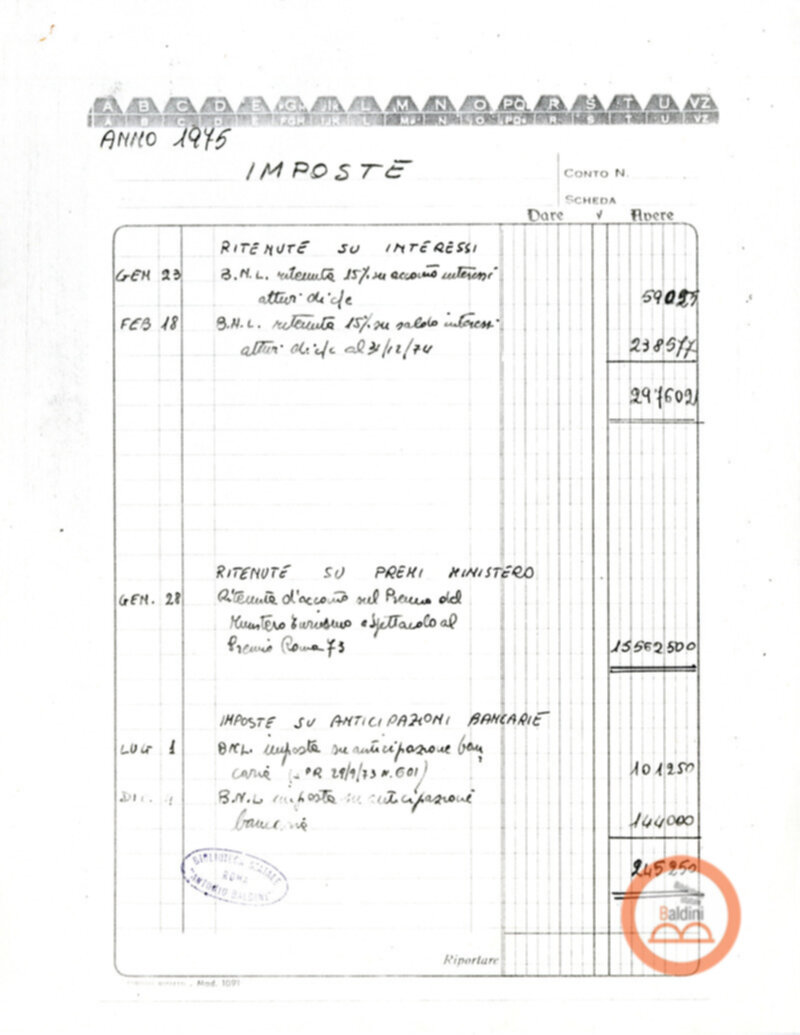 A B C D E FGH IJK L M N O PQ R S T U VZ
A B C D E FGH IJK L Mc N O PQu R S T U VZ
ANNO 1975
IMPOSTE
CONTO N.
SCHEDA
Dare √ Avere
RITENUTE SU INTERESSI
GEN 23 B.N.L. ritenuta 15% su acconto interessi
attivi di c/c 59025
FEB 18 B.N.L. ritenuta 15% su saldo interessi
attivi di c/c al 31/12/74 238577
297602
RITENUTE SU PREMI MINISTERO
GEN. 28 Ritenuta d'acconto sul Premio del
Ministero Turismo e Spettacolo al
Premio Roma 73 15562500
IMPOSTE SU ANTICIPAZIONI BANCARIE
LUG 1 BNL. imposta su anticipazione ban
caria PR 29/9/73 N. 601) 101250
DIC. B.N.L imposta su anticipazione
bancaria 144000
BIBLIOTECA STATALE
ROMA
"ANTONIO BALDINI"
245250
Biblioteca
Statale
Baldini
Riportare
Mod. 1091